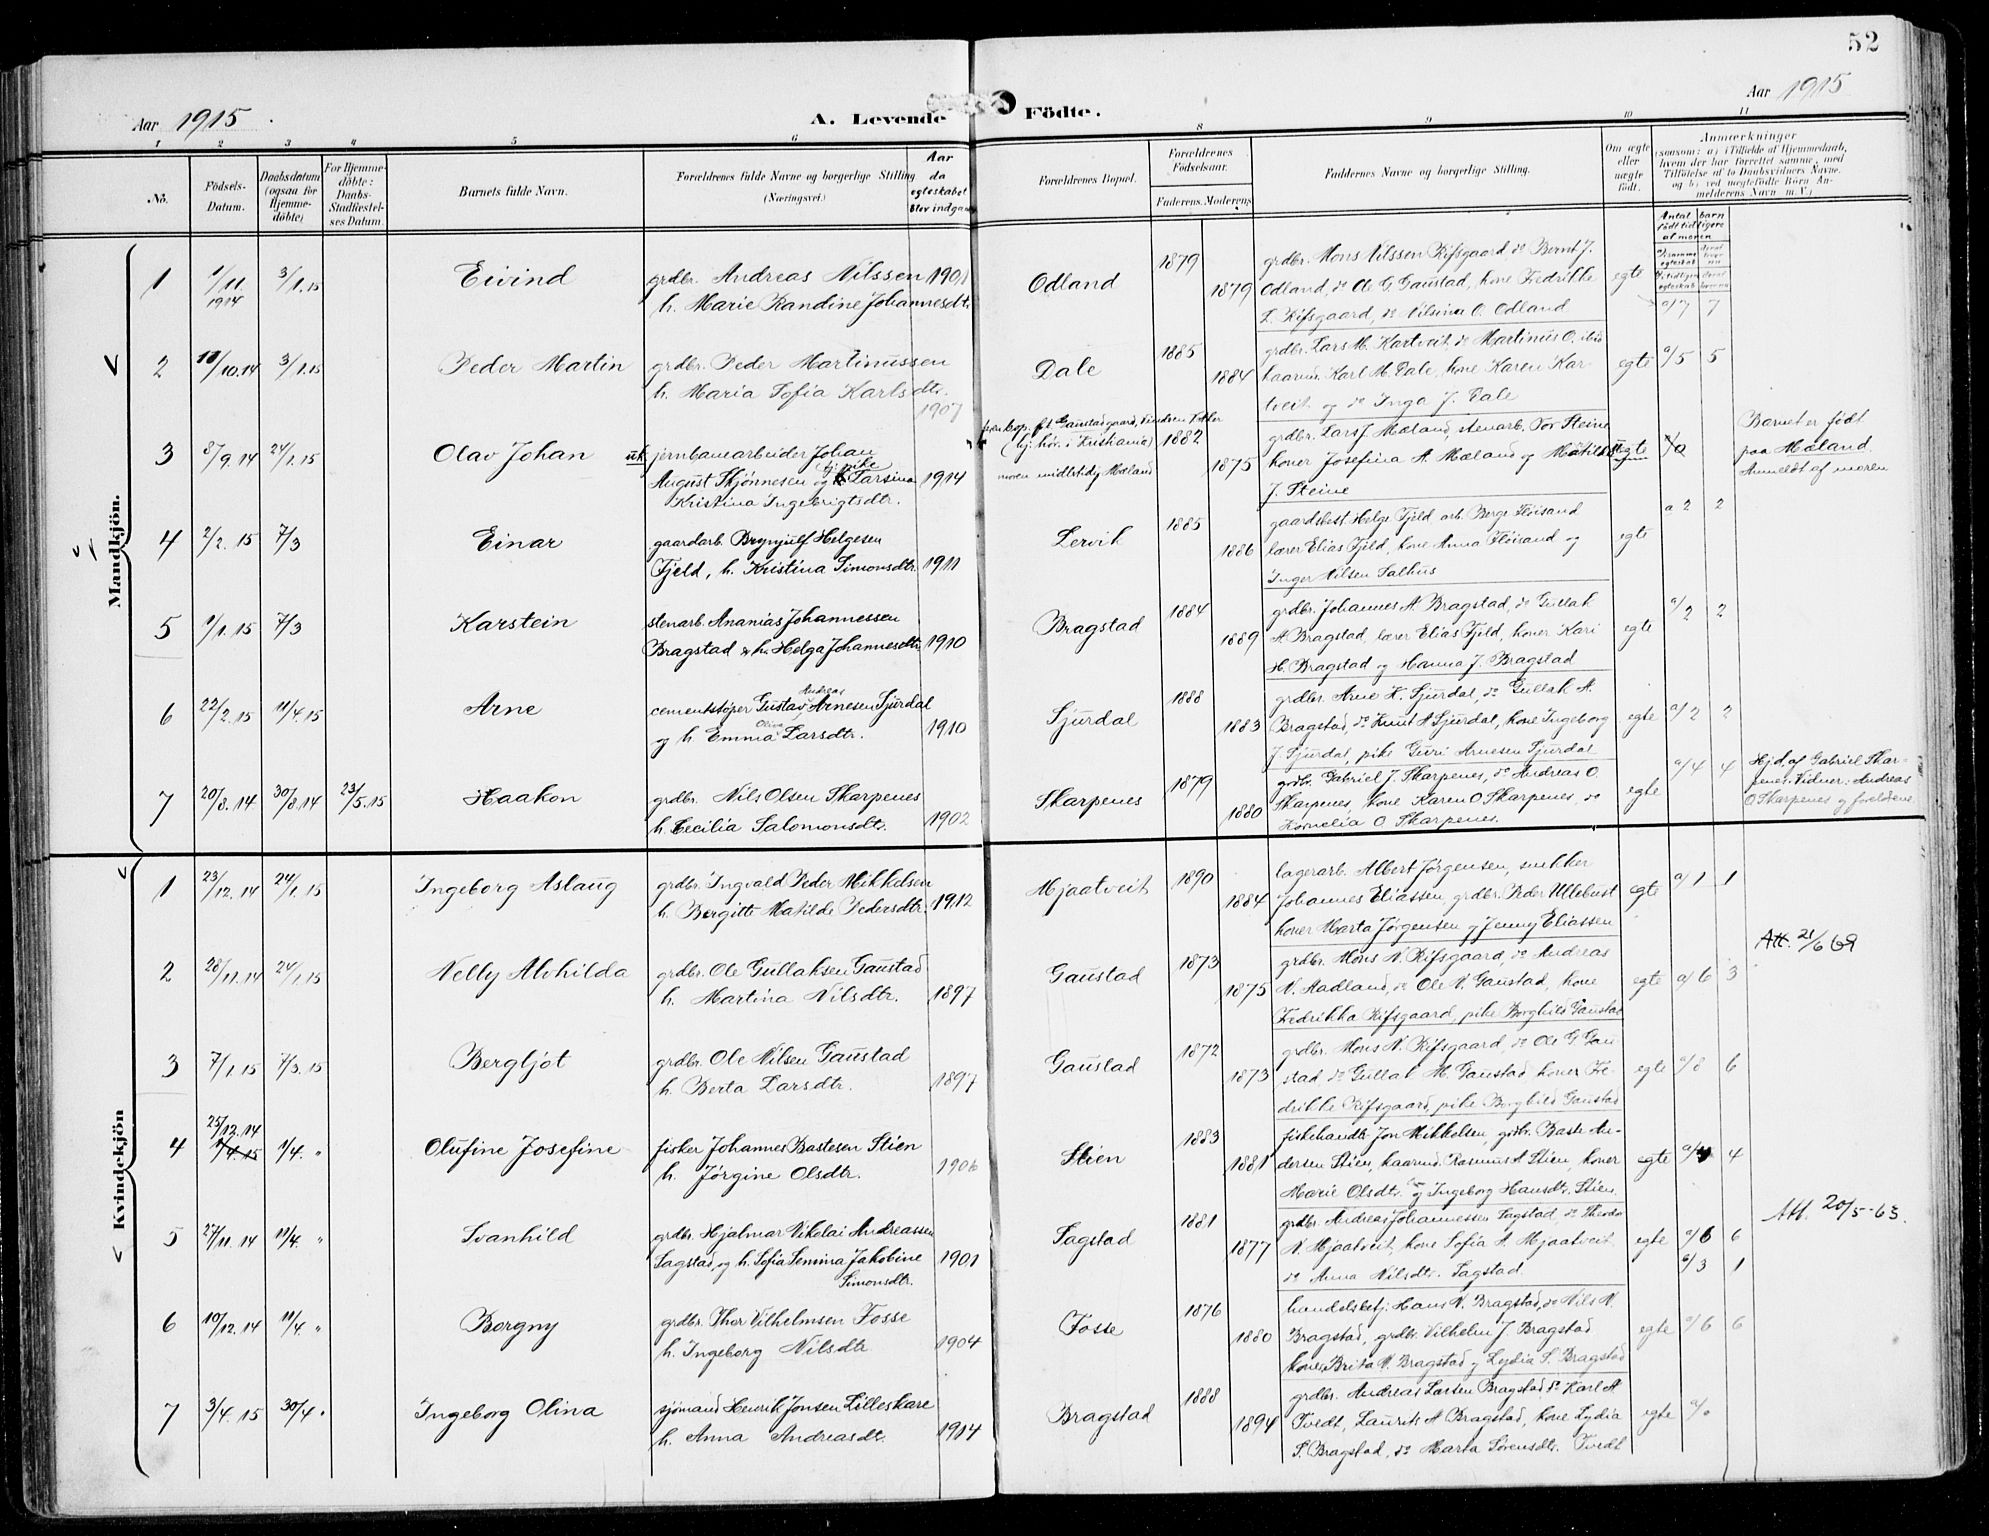 52
Aar 1915.
A. Levende Födte.
Aar 1915
1 2 3 4 5 6 8 9 10 11
No.
Födsels-Datum.
Daabsdatum (ogsaa for Hjemme-döbte)
For Hjemme-döbte: Daabs-Stadfæstel-ses Datum
Barnets fulde Navn.
Forældrenes fulde Navne og borgerlige Stilling (Næringsvei.)
Aar da egteskabet blev indgaa
Forældrenes Bopæl.
Forældrenes Födselsaar.
Faderens. Moderens
Faddernes Navne og borgerlige Stilling.
Om ægte eller uægte födt.
Anmærkninger
(saasom: a) i Tilfælde af Hjemmedaab,
hvem der har forrettet samme, med
Tilföielse af to Daabsvidners Navne,
og b) ved uægtefödte Börn An-
melderens Navn m. V.)
Antal barn født tidligere af moren
Mandkjön.
1 1/11 1914 3/1.15 Eivind
grdbr. Andreas Nilssen 1901
h. Marie Randine Johannesdtr.
Odland 1879 1879
grdbr. Mons Nilssen Rifsgaard, do Bernt J.
Odland, do Ole G. Gaustad, kone Fredrikke
L. Rifsgaard, do Nilsina O. Odland
egte a/7 7
2 10/10.14 3/1.15 Peder Martin
grdbr. Peder Martinussen
h. Maria Sofia Karlsdtr.
1907
Dale 1885 1884
grdbr. Lars M. Kartveit, do Martinus O. ibid
haarm. Karl M. Dale, kone Karen Kar-
tveit og do Inga J. Dale
egte a/5 5
3 8/9.14 24/1.15 Olav Johan
uk. jernbanearbeider Johan
August Skjønnesen og tj. pike Larsina 1914
Kristina Ingebrigtsdtr.
(hj. hør. i Kristiania)
moren midlertidig Mæland
1882 1875
grdbr. Lars J. Mæland, stenarb. Tor Steine
koner Josefina A. Mæland og Matilde
J. Steine
Barnet er født
paa Mæland
Anmeldt af moren
4 2/2.15 7/3 Einar
gaardarb. Brynjulf Helgesen
Fjeld, h. Kristina Simonsdtr. 1911
Lervik 1885 1886
gaardsbest. Helge Fjeld, arb. Berge Fløisand
lærer Elias Fjeld, kone Anna Fløisand og
Inger Nilsen Salhus
egte a 2 2
5 1/1.15 7/3 Karstein
stenarb. Ananias Johannessen
Bragstad & h. Helga Johannesdtr 1910
Bragstad 1884 1889
grdbr. Johannes A. Bragstad, do Gullak
A Bragstad, lærer Elias Fjeld, koner Kari
H. Bragstad og Hanna J. Bragstad
egte a/2 2
6 22/2.15 11/4.15 Arne
cementstøper Gustav Andreas Arnesen Sjurdal
og h. Emma Oliva Larsdtr. 1910
Sjurdal 1888 1883
grdbr. Arne K. Sjurdal, do Gullak A.
Bragstad, do Knut A Sjurdal, kone Ingeborg
J. Sjurdal, pike Guri Arnesen Sjurdal
egte a/2 2
7 20/8.14 30/8.14 23/5.15 Haakon
grdbr. Nils Olsen Skarpenes
h. Cecilia Salomonsdtr. 1902
Skarpenes 1879 1880
grdbr. Gabriel J. Skarpenes, do Andreas O.
Skarpenes, kone Karen O Skarpenes, do
Kornelia O Skarpenes.
egte a/4 4
Hjd. af Gabriel Skar-
penes. Vidner: Andreas
O Skarpenes og forældrene.
Kvindekjön
1 23/12.14 24/1.15 Ingeborg Aslaug
grdbr. Ingvald Peder Mikkelsen
h. Bergitte Matilde Pedersdtr. 1912
Mjaatveit 1890 1884
lagerarb. Albert Jørgensen, snekker
Johannes Eliassen, grdbr. Peder Ullebust
koner Marta Jørgensen og Jenny Eliassen
egte a/1 1
2 28/11.14 24/1.15 Nelly Alvhilda
grdbr. Ole Gullaksen Gaustad
h. Martina Nilsdtr. 1897
Gaustad 1873 1875
grdbr. Mons N. Rifsgaard, do Andreas
N. Aadland, do Ole N. Gaustad, kone
Fredrikka Rifsgaard, pike Borghild Gaustad
egte a/6 3
Att. 21/6 69
3 7/1.15 7/3.15 Bergljot
grdbr. Ole Nilsen Gaustad
h. Berta Larsdtr. 1897
Gaustad 1872 1873
grdbr. Mons N. Rifsgaard, do Ole G Gau
stad, do Gullak M. Gaustad, koner Fre-
drikke Rifsgaard, pike Borghild Gaustad
egte a/8 6
4 25/12.14 1/4.15 11/4. " Olufine Josefine
fisker Johannes Bastesen Stien
h. Jørgine Olsdtr. 1906
Stien 1883 1881
fiskehandlr. Jon Mikkelsen, grdbr. Baste An-
dersen Stien, haarmd. Rasmus A Stien, koner
Marie Olsdtr. og Ingeborg Hansdtr. Stien.
egte a/4 4
5 27/11.14 11/4. " Svanhild
grdbr. Hjalmar Nikolai Andreassen
Sagstad, og h. Sofia Semina Jakobine 1901
Simonsdtr.
Sagstad 1881 1877
grdbr. Andreas Johannessen Sagstad, do Theodo
N. Mjaatveit, kone Sofia A. Mjaatveit
do Anna Nilsdtr. Sagstad.
egte a/6 6
b/3 1
Att. 20/5-63.
6 10/12.14 11/4. " Borgny
grdbr. Thor Vilhelmsen Fosse
h. Ingeborg Nilsdtr 1904
Fosse 1876 1880
handelsbetj. Hans N. Bragstad, do Nils N.
Bragstad, grdbr. Vilhelm J. Bragstad
koner Brita N. Bragstad og Lydia S. Bragstad
egte a/6 6
7 3/4.15 30/4 " Ingeborg Olina
sjømand Henrik Jonsen Lilleskare
h. Anna Andreasdtr. 1914
Bragstad 1888 1894
grdbr. Andreas Larsen Bragstad do Karl A
Tvedt, Laurits A Bragstad, kone Lydia
S. Bragstad, do Marta Sørensdtr. Tvedt
egte a/0